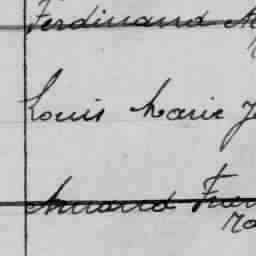 Ferdinand M
Louis Marie J
Armand Fran